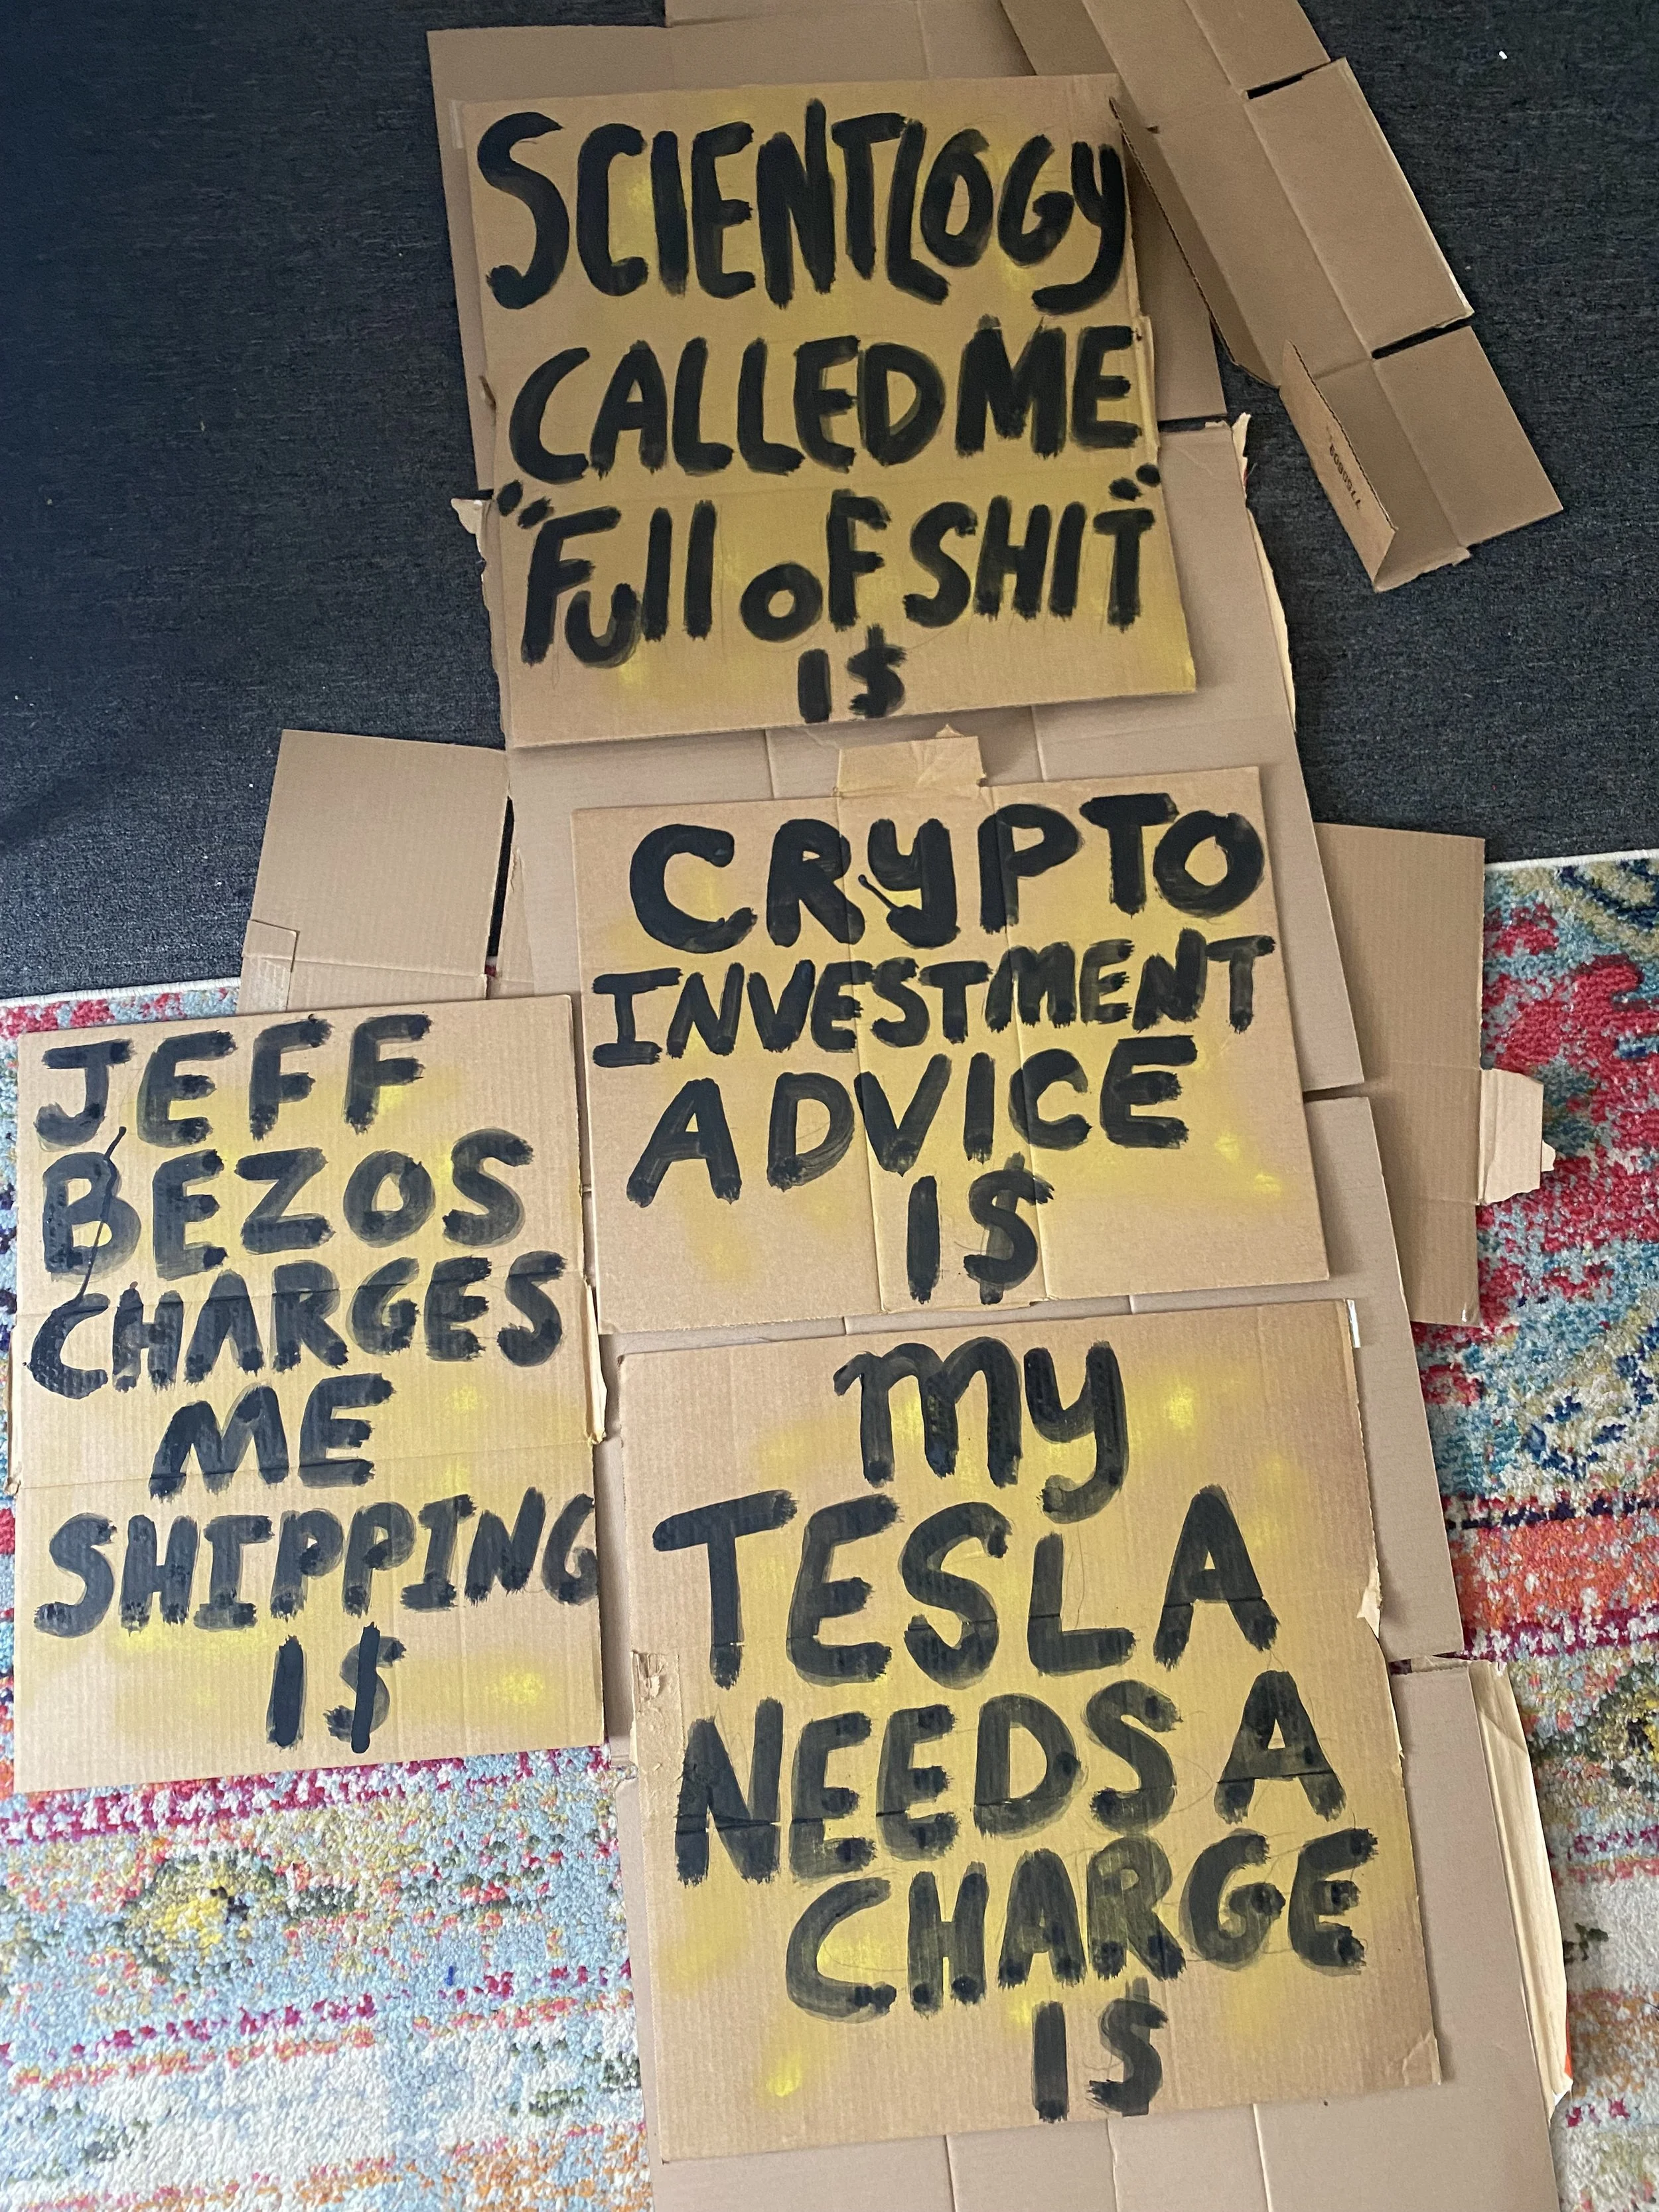 SCIENTLOGY
CALLED ME
"FUll oF SHIT"
I$
CRyPTO
INVESTMENT
ADVICE
I$
JEFF
BEZOS
CHARGES
ME
SHIPPING
I$
my
TESLA
NEEDS A
CHARGE
I$